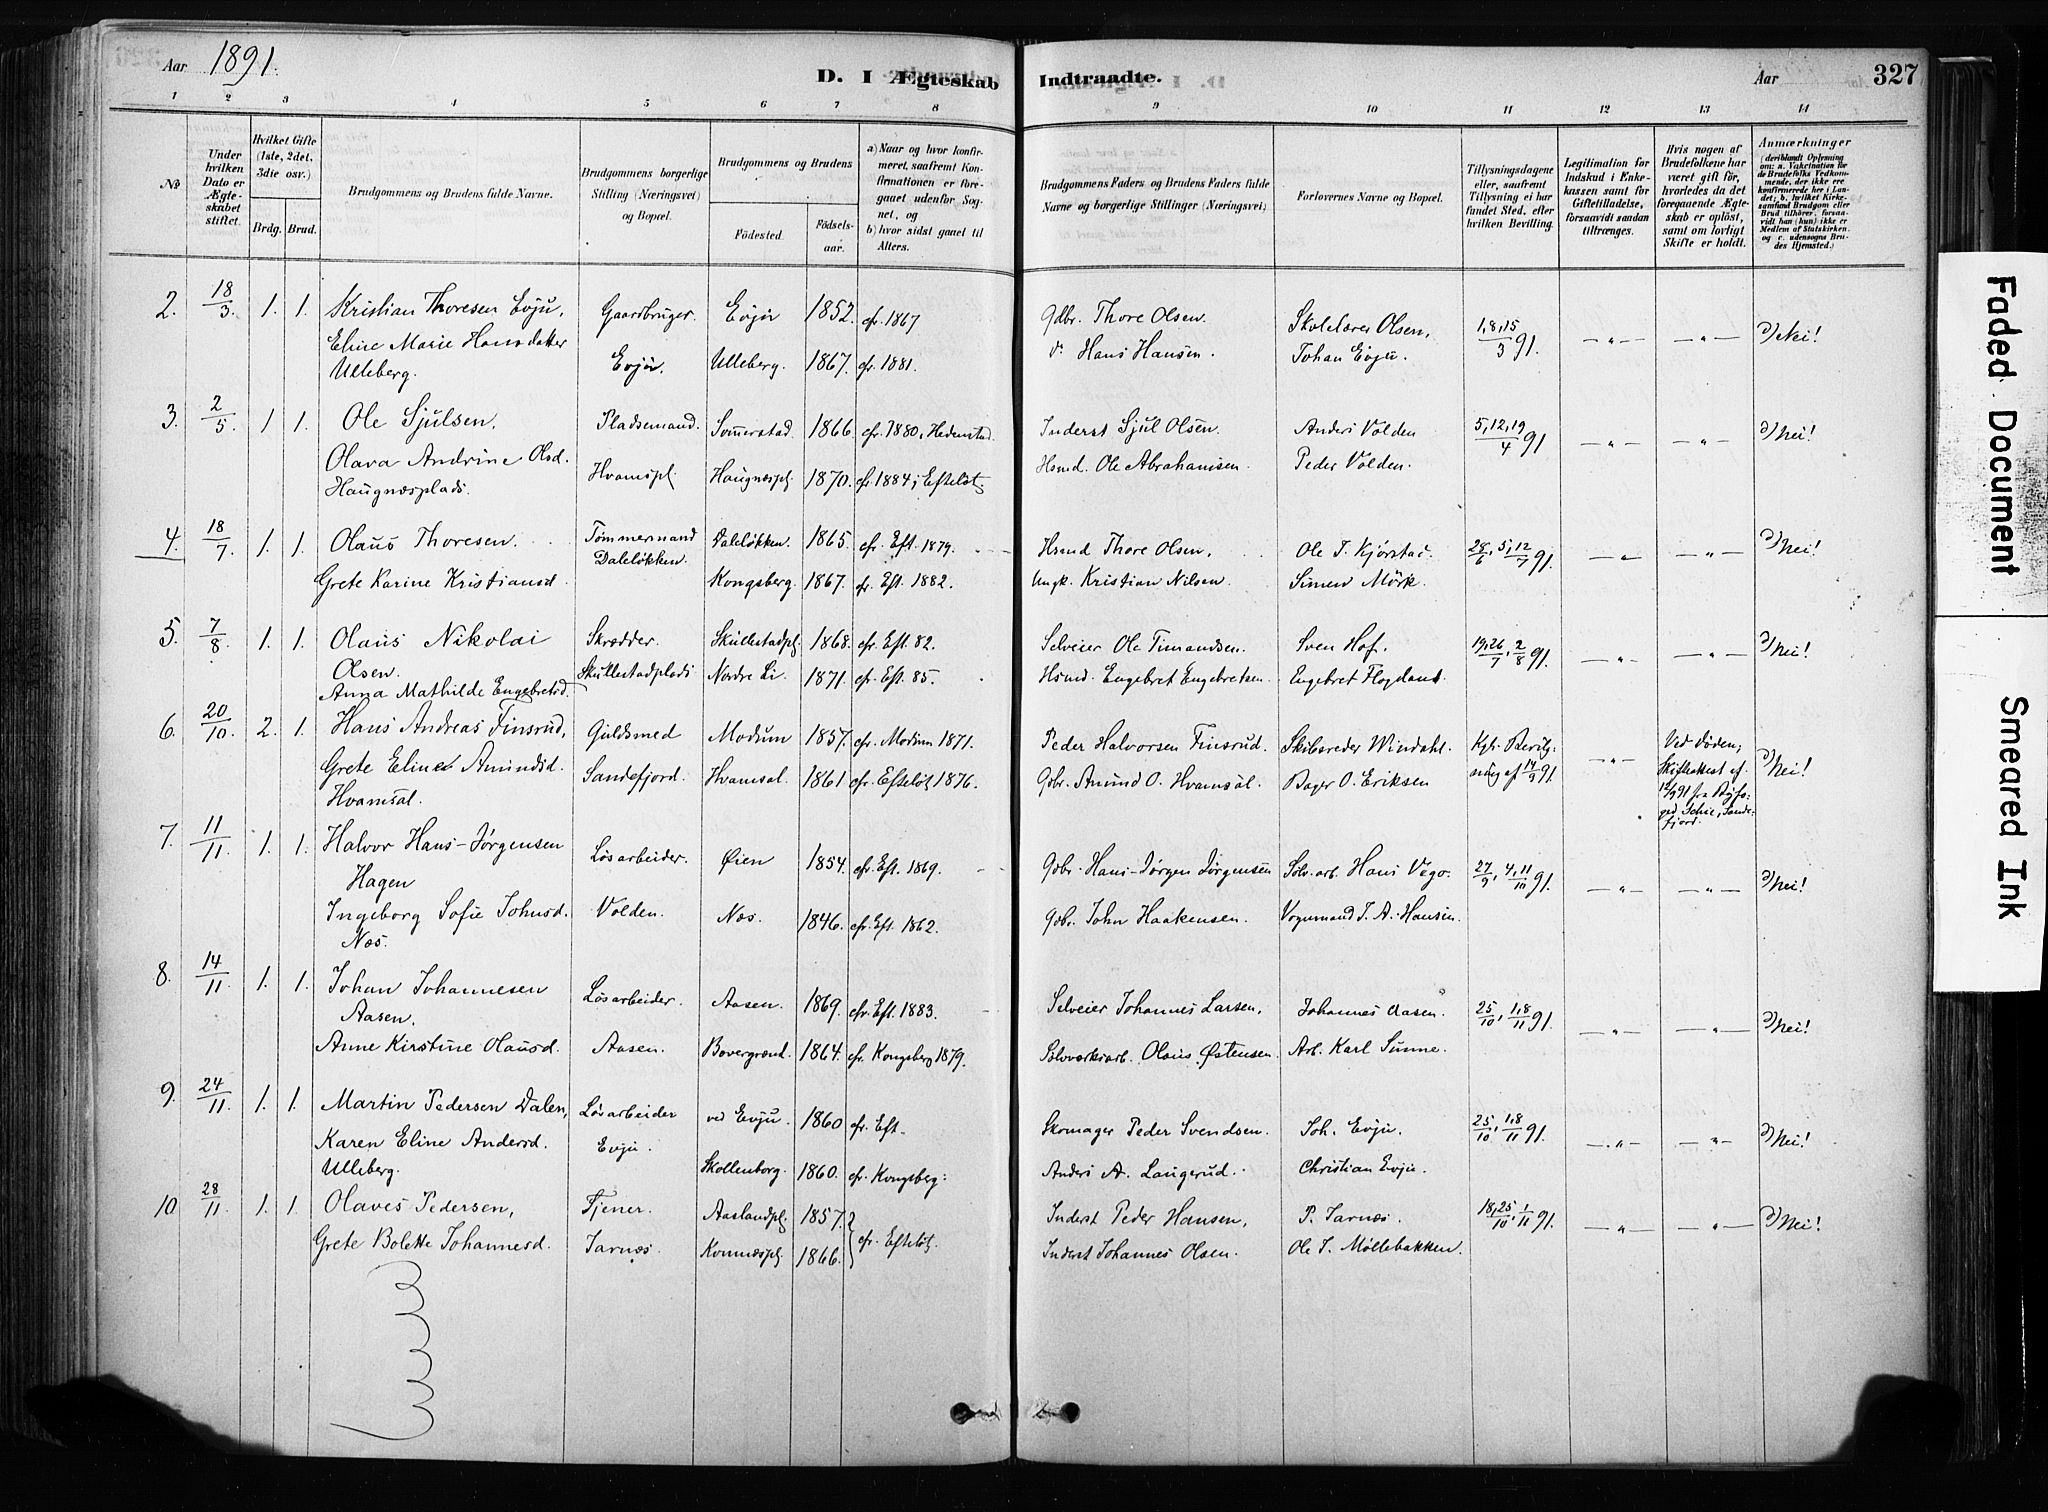 Aar 1891.
D. I Ægteskab Indtraadte.
Aar 327
1 2 3 4 5 6 7 8 9 10 11 12 13 14
No
Under hvilken Dato er Ægteskabet stiftet.
Hvilket Gifte (1ste, 2det, 3die osv.)
Brdg. Brud.
Brudgommens og Brudens fulde Navne.
Brudgommens borgerlige Stilling (Næringsvei) og Bopæl.
Brudgommens og Brudens
Fødested. Fødselsaar.
a) Naar og hvor konfirmeret, saafremt Konfirmationen er foregaaet udenfor Sognet, og
b) hvor sidst gaaet til Alters.
Brudgommens Faders og Brudens Faders fulde Navne og borgerlige Stillinger (Næringsvei)
Forlovernes Navne og Bopæl.
Tillysningsdagene eller, saafremt Tillysning ei har fundet Sted, efter hvilken Bevilling.
Legitimation for Indskud i Enkekassen samt for Giftetilladelse, forsaavidt saadan tiltrænges.
Hvis nogen af Brudefolkene har været gift før, hvorledes da det foregaaende Ægteskab er opløst, samt om lovligt Skifte er holdt.
Anmærkninger
(deriblandt Oplysning om: a. Vakcination for de Brudefolks Vedkommende, der ikke ere konfirmerede her i Landet; b. hvilket Kirkesamfund Brudgom eller Brud tilhører, forsaavidt han (hun) ikke er Medlem af Statskirken. og c. udensogns Brudes Hjemsted.)
2. 18/3. 1. 1. Kristian Thoresen Evju, Gaardbruger. Evju 1852. cfr. 1867 Gdbr. Thore Olsen. Skolelærer Olsen, 1,8,15/3 91. — " — — " — a) Nei!
Eline Marie Hansdatter Evju. Ulleberg. 1867. cfr. 1881. do Hans Hansen. Johan Evju.
Ulleberg.
3. 2/5. 1 1. Ole Sjulsen, Pladsemand. 1866. cfr. 1880, Hedenstad. Inderst Sjul Olsen. Anders Volden 5,12,19/4 91 — " — — " — a) Nei!
Olava Andrine Olsd. Hvamspl. Haugnæspl. 1870. cfr. 1884, Efteløt. Hsmd. Ole Abrahamsen. Peder Volden.
Haugnæsplads.
4. 18/7. 1. 1. Olaus Thoresen. Tømmermand Daleløkken. 1865. cfr. Eft. 1879. Hsmd Thore Olsen, Ole T. Kjørstad. 28/6, 5,12/7 91. — " — — " — a) Nei!
Daleløkken.
Grete Karine Kristiansd. Kongsberg. 1867. cfr. Eft. 1882. Ungk. Kristian Nilsen. Simen Mørk.
5. 7/8. 1. 1. Olaus Nikolai Skrædder. Skullestadpl. 1868. cfr. Eft. 82. Selveier Ole Timandsen. Sven Hof. 19,26/7, 2/8 91. — " — — " — a) Nei!
Olsen. Skullestadplads Nordre Li. 1871. cfr. Eft. 85. Hsmd. Engebret Engebretsen. Engebret
Anna Mathilde Engebretsd.
6. 20/10. 2. 1. Hans Andreas Finsrud, Guldsmed Modum 1857. cfr. Modum 1871. Peder Halvorsen Finsrud. Skibsreder Windahl. Kgl. Bevilgning af 14/9 91. — " — Ved Døden; a) Nei!
Grete Eline Amundsd. Sandefjord. Hvamsal. 1861 cfr. Efteløt 1876. Gdbr. Amund O. Hvamsal. Bager O. Eriksen
Skifteattest af
Hvamsal. 12/9 91 fra Byfoged Schie, Sandefjord.
7. 11/11. 1. 1. Halvor Hans-Jørgensen Løsarbeider. Øien 1854. cfr. Eft. 1869. Gdbr. Hans-Jørgen Jørgensen Sølv.arb. Hans Vego. 27/9, 4,11/10 91. — " — — " — a) Nei!
Hagen
Ingeborg Sofie Johnsd. Volden. Næs. 1846. cfr. Eft. 1862. Gdbr. John Haakensen. Vognmand J. A. Hansen.
Næs.
8. 14/11. 1. 1. Johan Johannesen Løsarbeider. Aasen. 1869. cfr. Eft. 1883. Selveier Johannes Larsen, Johannes Aasen. 25/10, 1,8/11 91. — " — — " — a) Nei!
Aasen,
Anne Kirstine Olausd. Aasen. 1864. cfr. Kongsberg 1879. Sølvverksarb. Olaus Østensen. Arb. Karl Sunne.
9. 24/11. 1. 1. Martin Pedersen Dalen, Løsarbeider ved Evju. 1860 cfr. Eft. Skomager Peder Svendsen. Joh. Evju. 25/10, 1,8/11 91. — " — — " — a) Nei!
Karen Eline Andersd. Evju. Skollenborg. 1860. cfr. Kongsberg: Anders A. Laugerud. Christian Evju.
Ulleberg.
10 28/11. 1. 1. Olaves Pedersen, Tjener. Aaslandpl. 1857. cfr. Efteløt. Inderst Peder Hansen, P. Jarnæs. 18,25/10, 1/11 91. — " — — " — a) Nei!
Grete Bolette Johannesd. Jarnæs. 1866. Inderst Johannes Olsen. Ole J. Møllebakken.
Faded Document
Smeared Ink